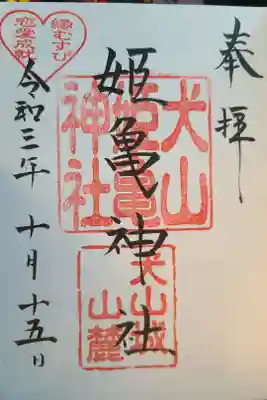 奉拝
姫亀神社
犬山
姫亀
神社
犬山城
山麓
縁むすび
恋愛成就
令和三年 十月十五日